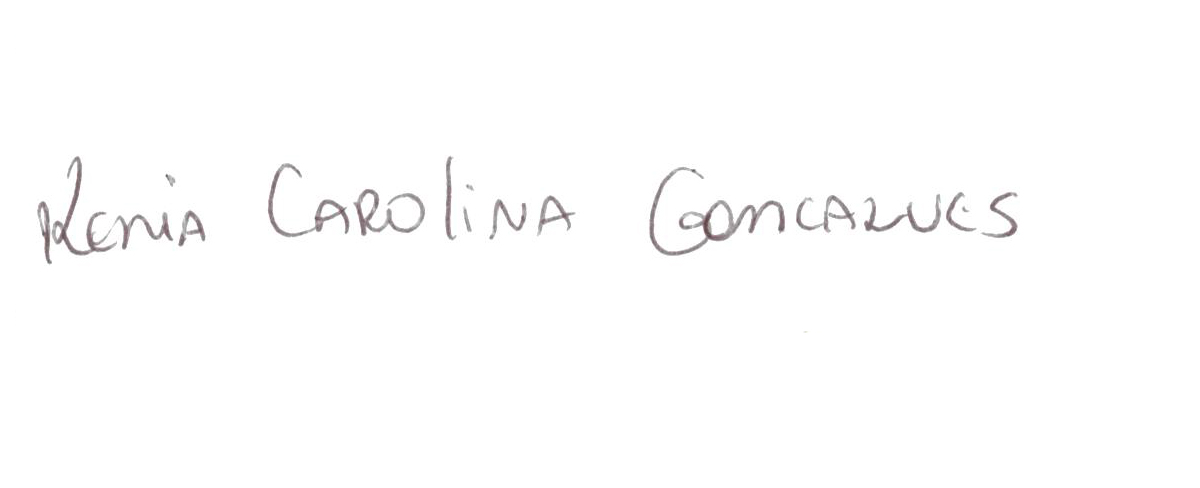 Kenia Carolina Goncalves